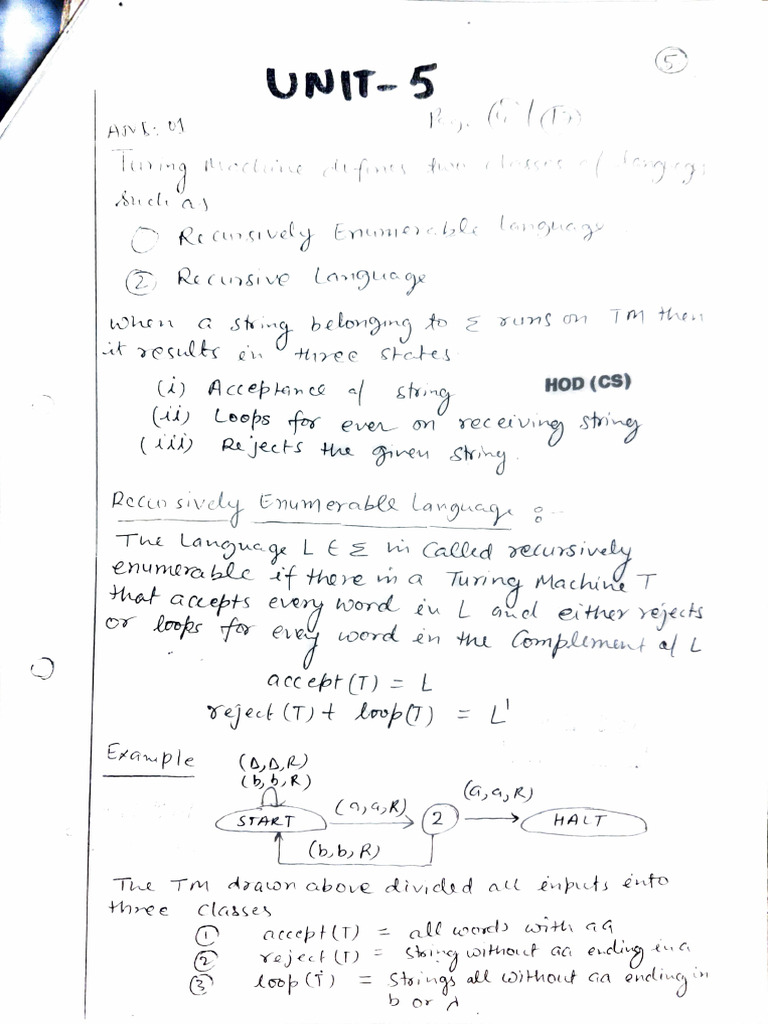 5
UNIT-5
ANS: 01
Turing Machine defines two classes of
such as
① Recursively Enumerable Language
② Recursive Language
when a string belonging to Σ runs on TM then
it results in three states
(i) Acceptance of string
HOD (CS)
(ii) Loops for ever on receiving string
(iii) Rejects the given string.
Recursively Enumerable Language :-
The Language L ∈ Σ is called recursively
enumerable if there is a Turing Machine T
that accepts every word in L and either rejects
or loops for every word in the Complement of L
accept(T) = L
reject(T) + loop(T) = L'
Example
(Δ,Δ,R)
(b,b,R)
START
(a,a,R)
2
(a,a,R)
HALT
(b,b,R)
The TM drawn above divided all inputs into
three classes
① accept(T) = all words with aa
② reject(T) = string without aa ending in a
③ loop(T) = strings all without aa ending in
b or λ